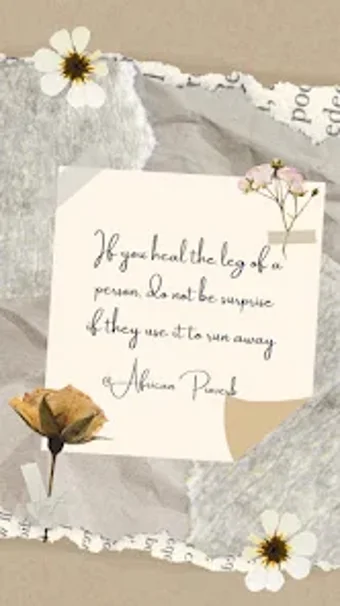 If you heal the leg of a
person, do not be surprise
if they use it to run away.
@African Proverb